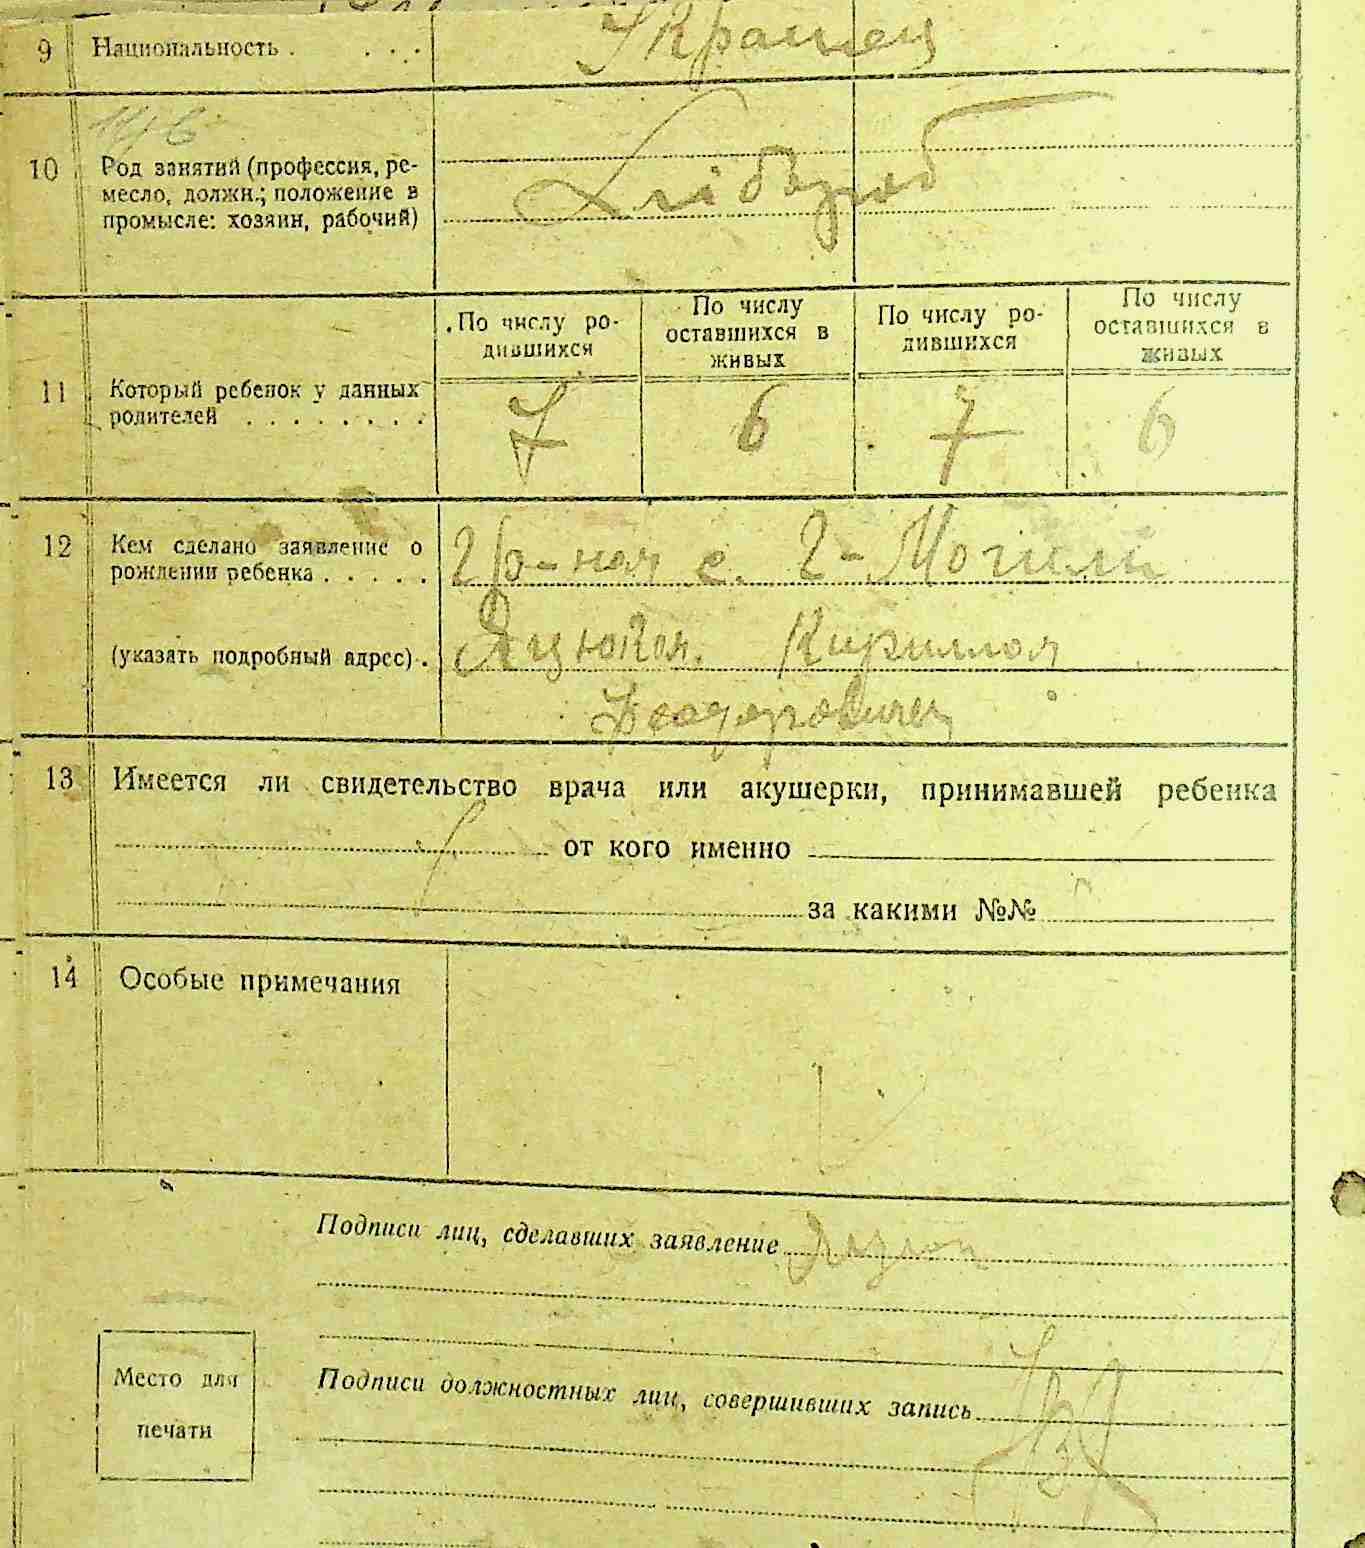 9 Национальность . . . . Украинец
10 Род занятий (профессия, ре-
месло, должн.; положение в
промысле: хозяин, рабочий)
Хлібороб
По числу ро-
дившихся
По числу
оставшихся в
живых
По числу ро-
дившихся
По числу
оставшихся в
живых
11 Который ребенок у данных
родителей . . . . . . . .
7 6 7 6
12 Кем сделано заявление о
рождении ребенка . . . . .
гр-ном с. Могили
(указать подробный адрес) .
Яцюком Кирилом
Феодоровичем
13 Имеется ли свидетельство врача или акушерки, принимавшей ребенка
от кого именно
за какими №№
14 Особые примечания
Подписи лиц, сделавших заявление
Место для
печати
Подписи должностных лиц, совершивших запись